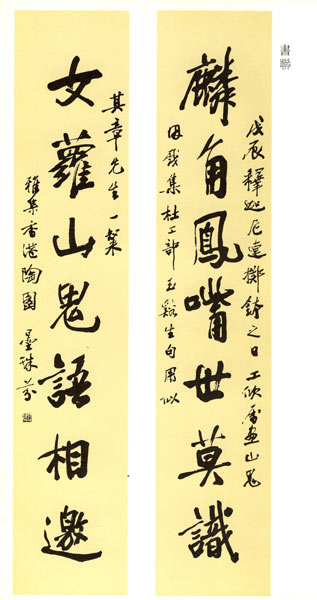 書聯
麟角鳳嘴世莫識
女蘿山鬼語相邀
戊辰釋迦尼連擲鉢之日工欣為畫山鬼
因戲集杜工部玉谿生句用似
其章先生一粲
雅集香港陶園